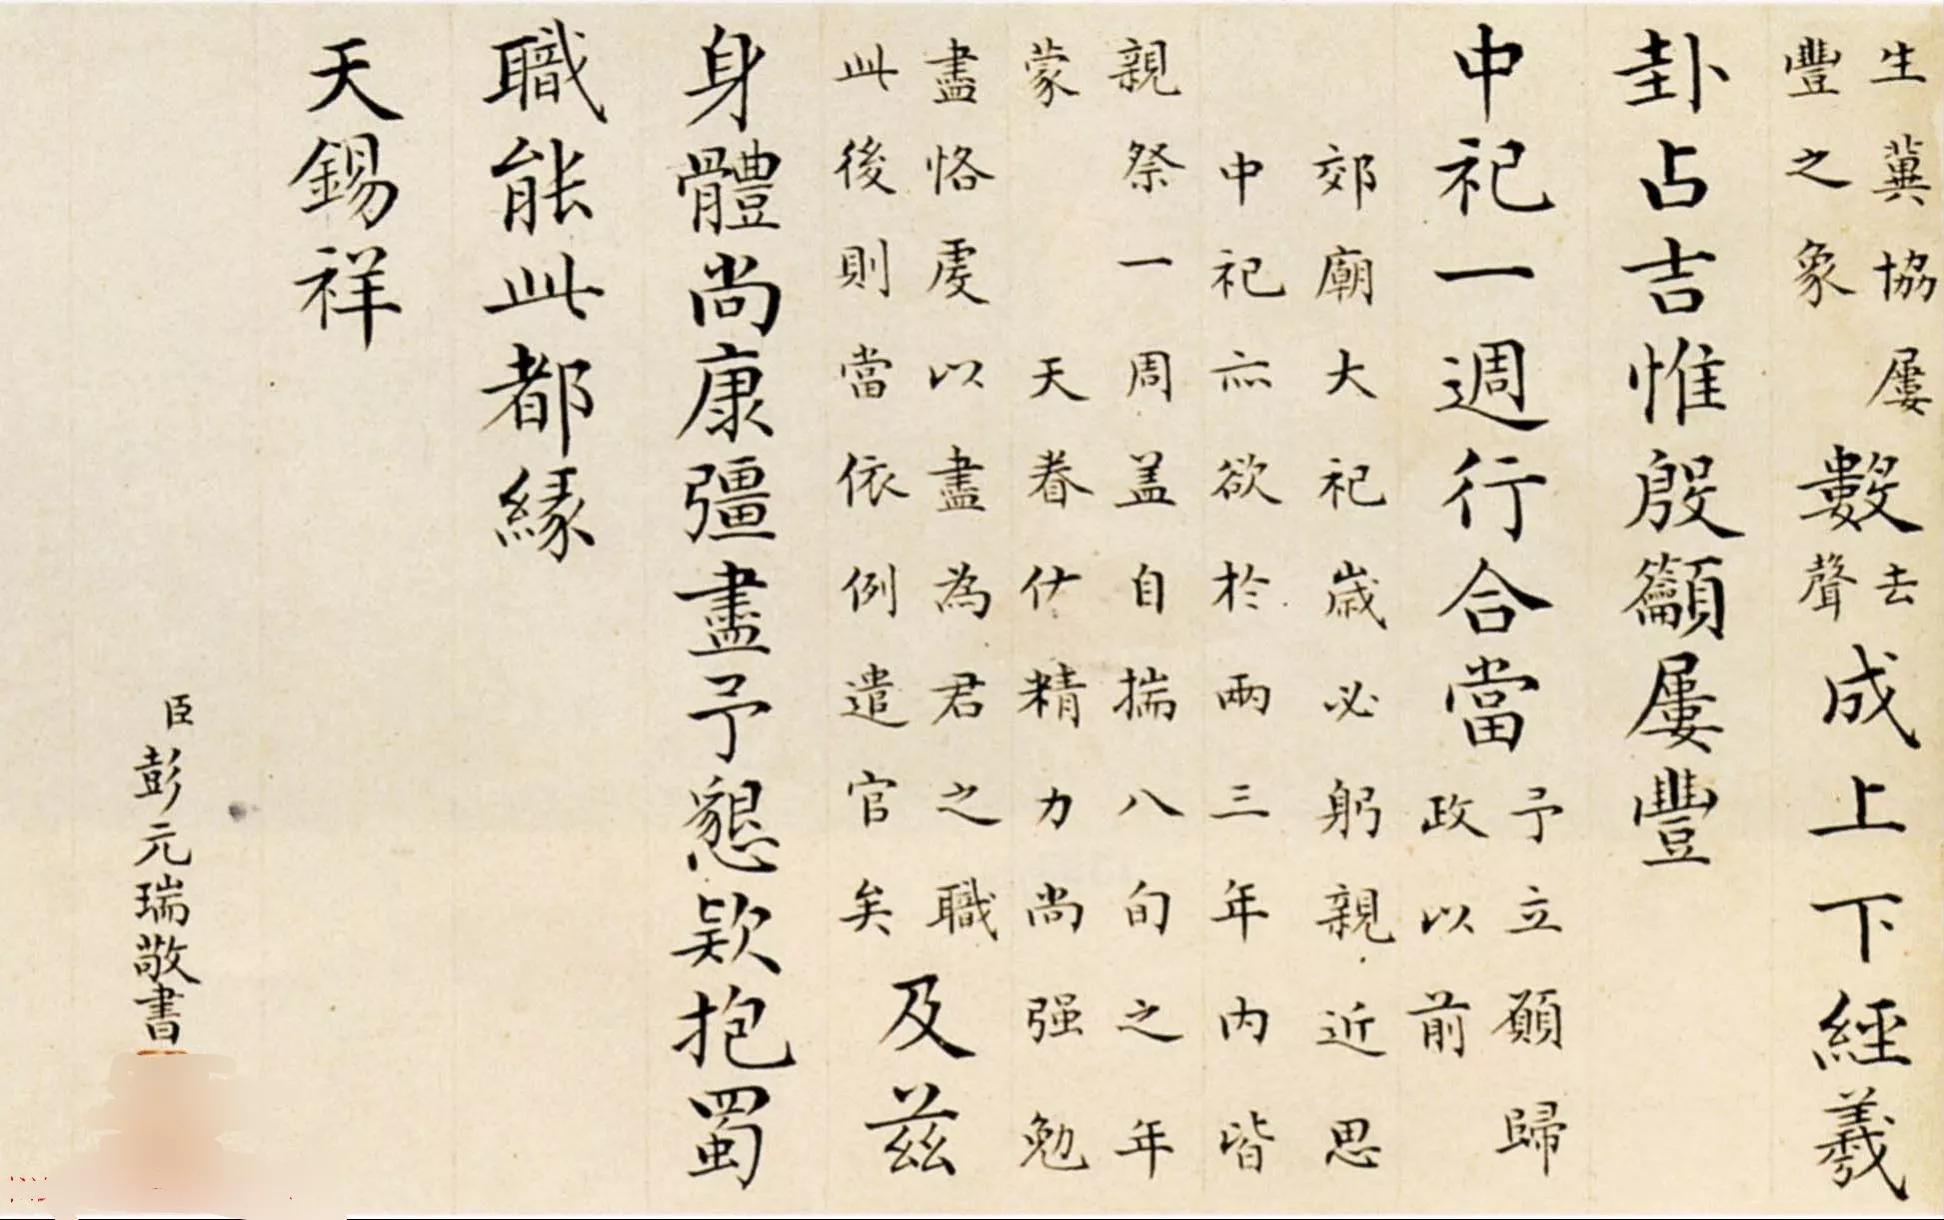 生蓂協屢
豐之象
數
去
聲
成上下經羲
卦占吉惟殷籲屢豐
中祀一週行合當
予立願歸
政以前
郊廟大祀歲必躬親近思
中祀亦欲於兩三年內皆
親祭一周盖自揣八旬之年
蒙天眷精力尚强勉
盡恪虔以盡為君之職
此後則當依例遣官矣
及茲
身體尚康彊盡予懇欵抱蜀
職能此都緣
天錫祥
臣彭元瑞敬書